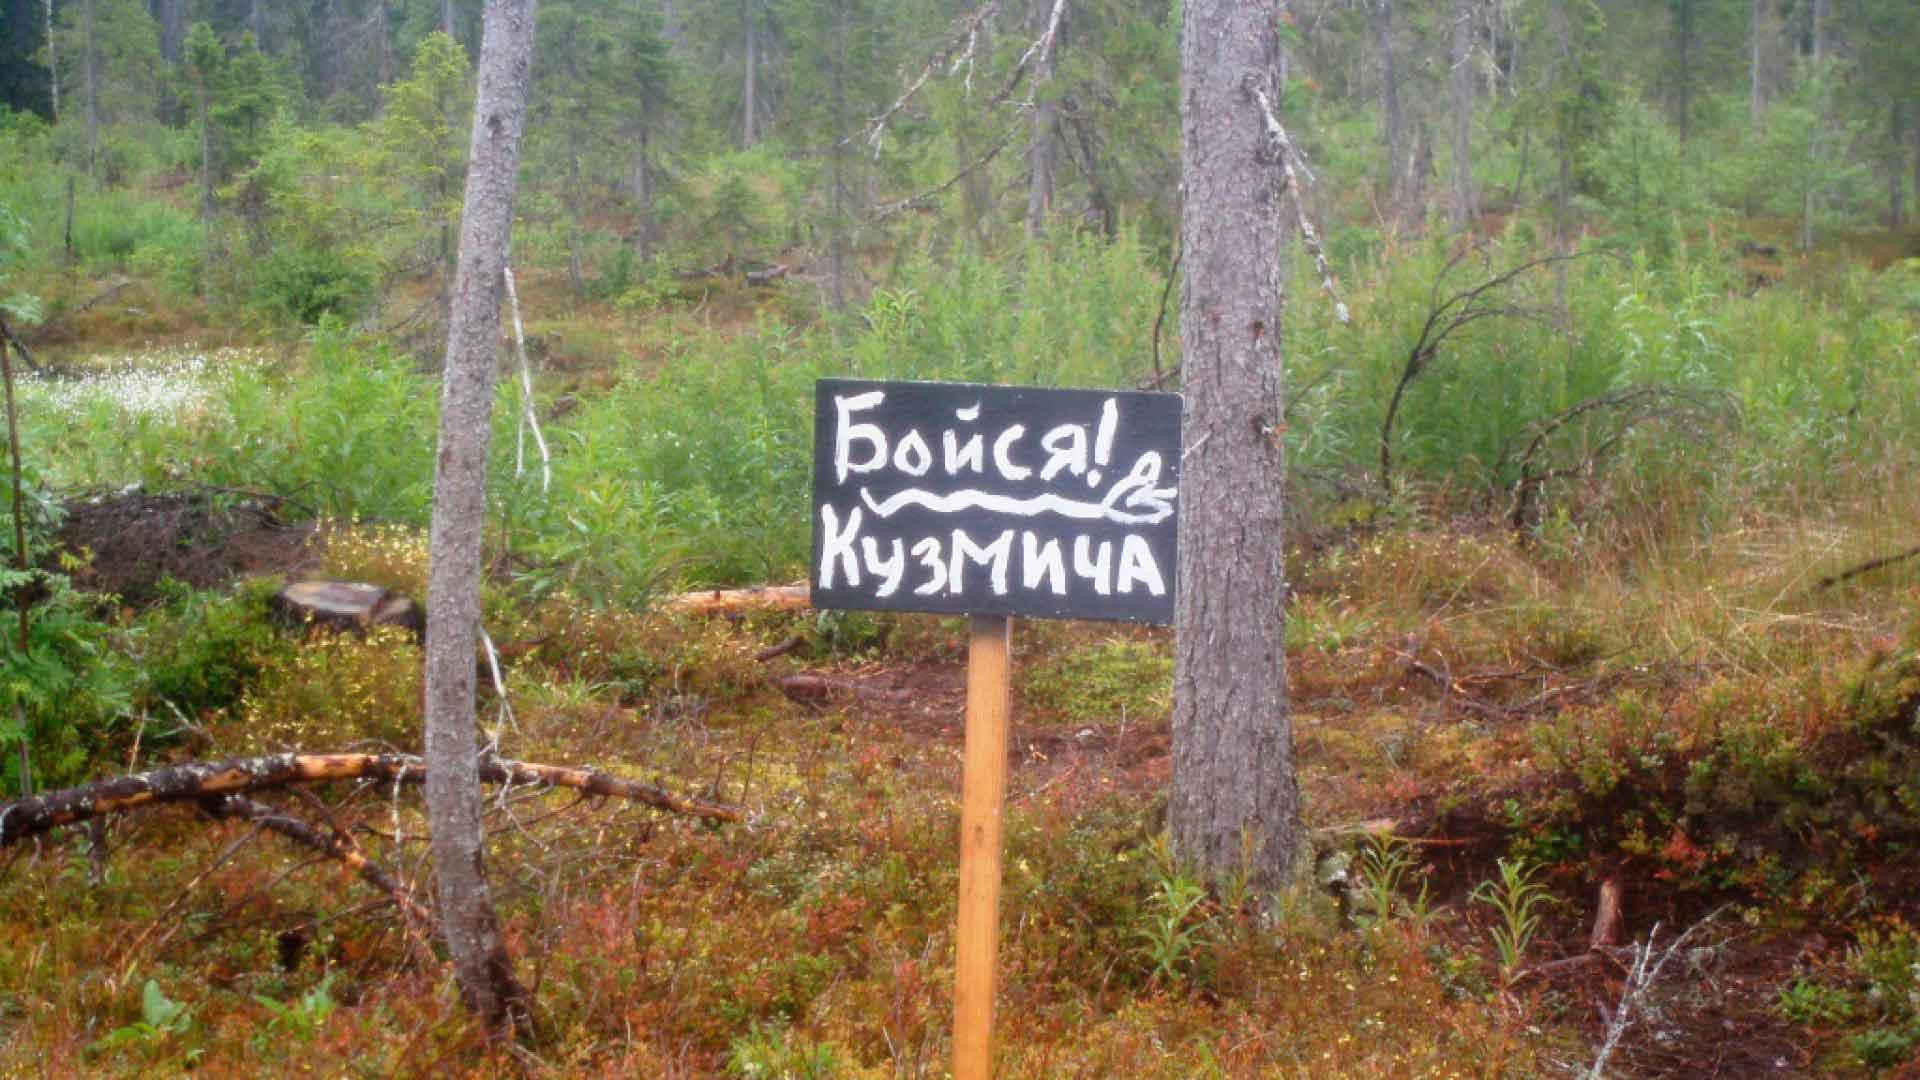 Бойся!
Кузмича